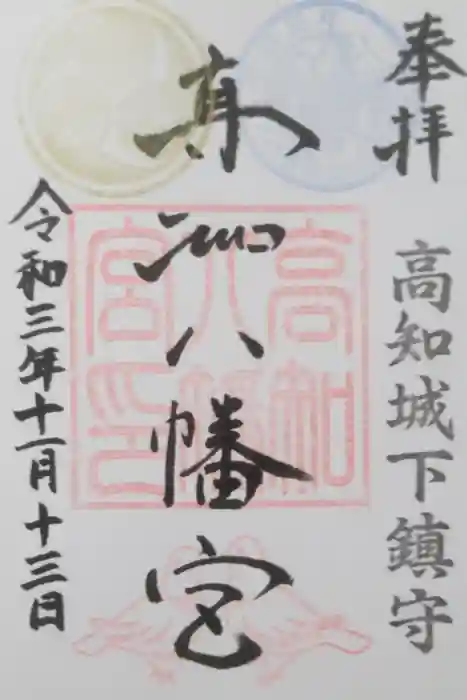 奉拝
高知城下鎮守
高知八幡宮
高知
八幡
宮印
令和三年十一月十三日